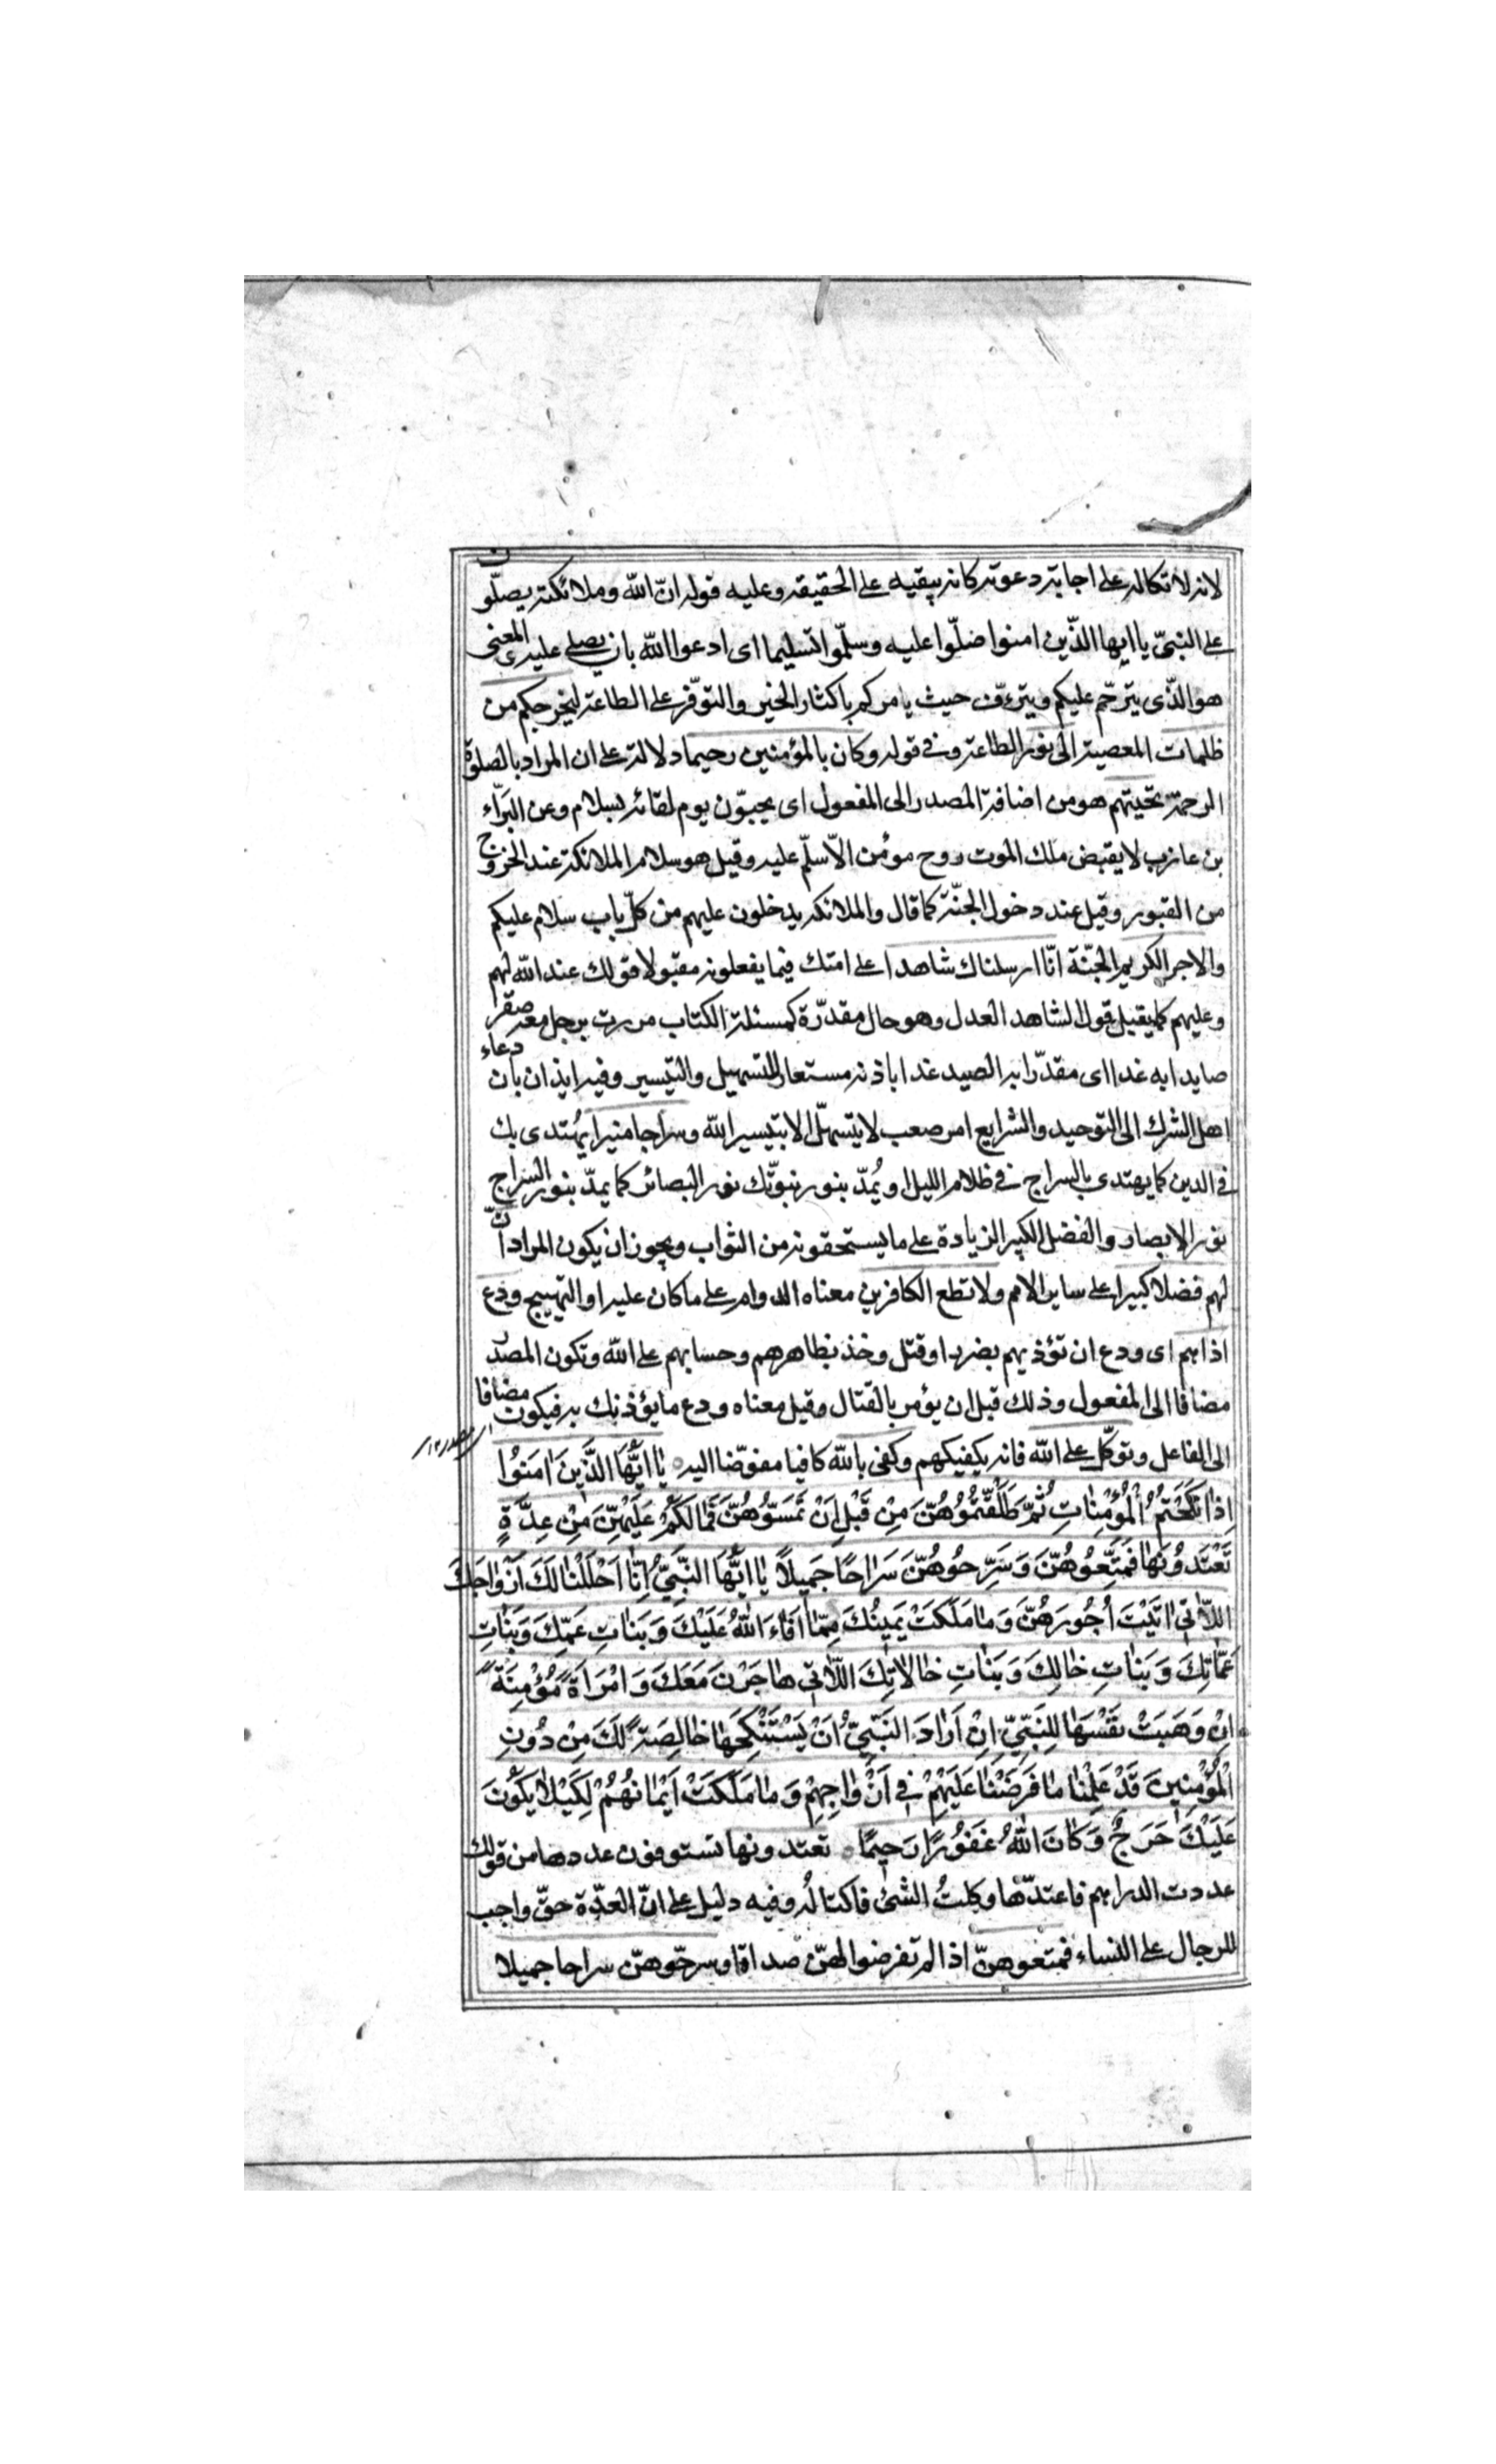 لانه لاتكاله على اجابة دعوته كانه يبقيه على الحقيقه وعليه قوله انّ الله وملائكته يصلّون
على النبىّ يا ايها الذّين امنوا صلّوا عليه وسلّموا تسليما اى ادعوا الله بان يصلى عليه والمعنى
هو الذّى يترحّم عليكم ويترءّف حيث يامركم باكثار الخير والتوفّر على الطاعة ليخرجكم من
ظلمات المعصية الى نور الطاعة وفى قوله وكان بالمؤمنين رحيما دلالة على ان المراد بالصلوة
الرحمة تحيّتهم هو من اضافة المصدر الى المفعول اى يحيّون يوم لقائه بسلام وعن البَرّاء
بن عازب لا يقبض ملك الموت روح مومُن الاّ سلّم عليه وقيل هو سلام الملائكة عند الخروج
من القبور وقيل عند دخول الجنّة كما قال والملائكة يدخلون عليهم من كلّ باب سلام عليكم
والاجر الكريم الجنّة انّا ارسلناك شاهدا على امتك فيما يفعلونه مقبولا قولك عند الله لهم
وعليهم كما يقبل قول الشاهد العدل وهو حال مقدّرة كمسئلة الكتاب مررت برجل معه صقر
صايدا به غدا اى مقدّرا به الصيد غدا باذنه مستعار للتسهيل والتيسير وفيه ايذان بان دعاء
اهل الشرك الى التوحيد والشرايع امر صعب لا يتسهّل الا بتيسير الله وسراجا منيرا يُهتدى بك
فى الدين كما يهتدى بالسراج فى ظلام الليل او يُمدّ بنور نبوّتك نور البصائر كما يمدّ بنور السراج
نور الابصار والفضل الكبير الزيادة على ما يستحقونه من الثواب ويجوز ان يكون المراد انّ
لهم فضلا كبيرا على ساير الامم ولا تطع الكافرين معناه الدوام على ما كان عليه او التهييج ودع
اذاهم اى ودع ان تؤذيهم بضرب او قتل وخذ بظاهرهم وحسابهم على الله وتكون المصدر
مضافا الى المفعول وذلك قبل ان يؤمر بالقتال وقيل معناه ودع ما يؤذونك به فيكون مضافا
الى الفاعل وتوكّل على الله فانه يكفيكهم وكفى بالله كافيا مفوّضا اليه يٰا اَيُّهَا الَّذينَ اٰمَنُوا
اِذٰا نَكَحْتُمُ الْمُؤْمِنٰاتِ ثُمَّ طَلَّقْتُمُوُهُنَّ مِنْ قَبْلِ اَنْ تَمَسّوُهُنَّ فَمٰا لَكُمْ عَلَيْهِنَّ مِنْ عِدَّةٍ
تَعْتَدوُنَهٰا فَمَتِّعوُهُنَّ وَسَرِّحوُهُنَّ سَرٰاحًا جَميلاً يٰا اَيُّهَا النَّبِيُّ اِنّٰا اَحْلَلْنٰا لَكَ اَزْوٰاجَكَ
اللّاٰتى اٰتَيْتَ اُجُورَهُنَّ وَمٰا مَلَكَتْ يَمينُكَ مِمّٰا اَفٰاءَ اللهُ عَلَيْكَ وَبَنٰاتِ عَمِّكَ وَبَنٰاتِ
عَمّٰاتِكَ وَبَنٰاتِ خٰالِكَ وَبَنٰاتِ خٰالاٰتِكَ اللّاٰتى هٰاجَرْنَ مَعَكَ وَامْرَاَةً مُؤْمِنَةً
اِنْ وَهَبَتْ نَفْسَهٰا لِلنَّبِيِّ اِنْ اَرٰادَ النَّبِيُّ اَنْ يَسْتَنْكِحَهٰا خٰالِصَةً لَكَ مِنْ دُونِ
الْمُؤْمِنينَ قَدْ عَلِمْنٰا مٰا فَرَضْنٰا عَلَيْهِمْ فى اَزْوٰاجِهِمْ وَمٰا مَلَكَتْ اَيْمٰانُهُمْ لِكَيْلاٰ يَكُونَ
عَلَيْكَ حَرَجٌ وَكٰانَ اللهُ غَفُورًا رَحيمًا تعتدونها تستوفون عددها من قولك
عددت الدراهم فاعتدّها وكِلتُ الشئ فاكتالُه وفيه دليل على انّ العدّة حقّ واجب
للرجال على النساء فمتعوهنّ اذا لم تفرضوا لهنّ صداقا وسرحّوهنّ سراحا جميلا